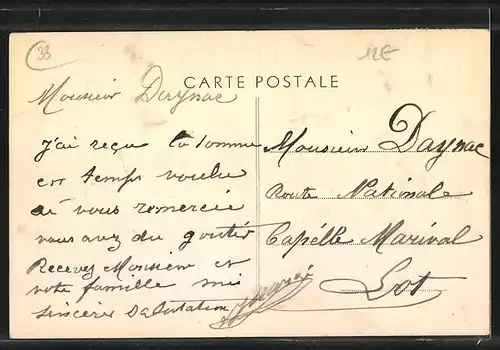 33
12E
CARTE POSTALE
Monsieur Daynac
J'ai reçu la somme
en temps voulu
ai vous remercie
vous avez du goutér
Recevez Monsieur et
votre famille mes
sincères Salutation
Monsieur Daynac
Route Nationale
Capélle Marival
Lot